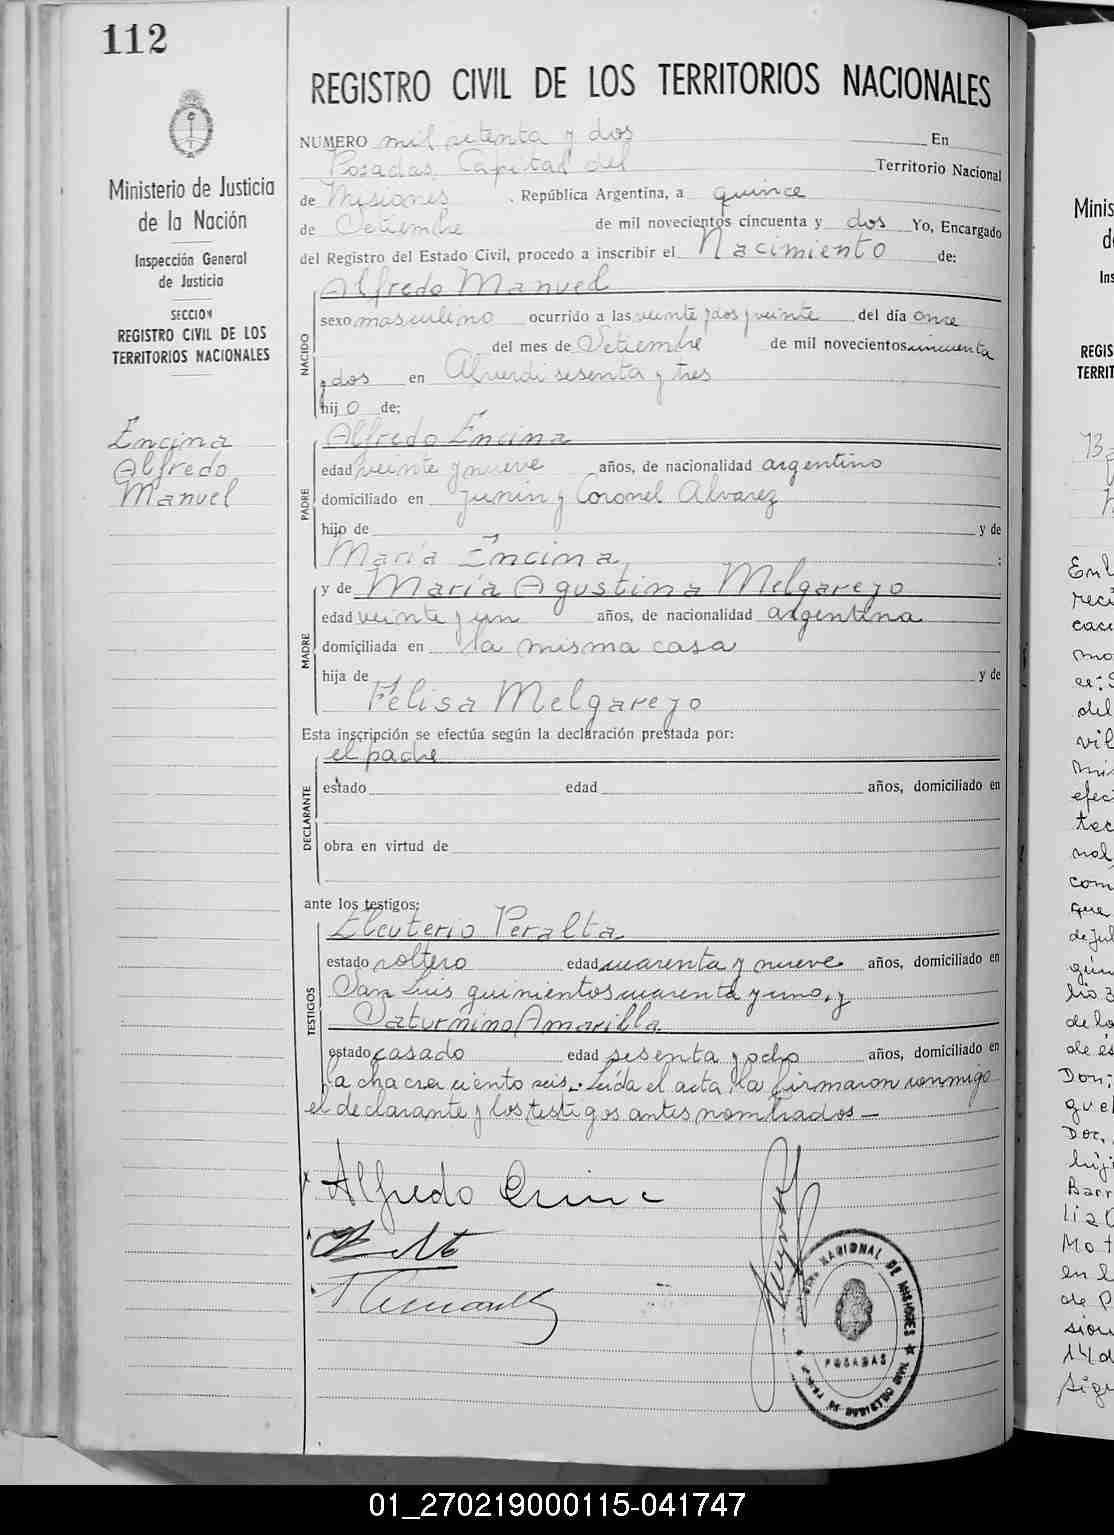 112
Ministerio de Justicia
de la Nación
Inspección General
de Justicia
SECCION
REGISTRO CIVIL DE LOS
TERRITORIOS NACIONALES
Encina
Alfredo
Manuel
REGISTRO CIVIL DE LOS TERRITORIOS NACIONALES
NUMERO mil setenta y dos En
Posadas, Capital del Territorio Nacional
de Misiones, República Argentina, a quince
de Setiembre de mil novecientos cincuenta y dos Yo, Encargado
del Registro del Estado Civil, procedo a inscribir el Nacimiento de:
NACIDO
Alfredo Manuel
sexo masculino ocurrido a las veinte y dos y veinte del día once
del mes de Setiembre de mil novecientos cincuenta
y dos en Alverdi sesenta y tres
hijo de:
PADRE
Alfredo Encina
edad veinte y nueve años, de nacionalidad argentino
domiciliado en Junin y Coronel Alvarez
hijo de y de
María Encina ;
MADRE
y de María Agustina Melgarejo
edad veinte y un años, de nacionalidad argentina
domiciliada en la misma casa
hija de y de
Felisa Melgarejo
Esta inscripción se efectúa según la declaración prestada por:
DECLARANTE
el padre
estado edad años, domiciliado en
obra en virtud de
ante los testigos:
TESTIGOS
Eleuterio Peralta
estado soltero edad cuarenta y nueve años, domiciliado en
San Luis quinientos cuarenta y uno, y
Saturnino Amarilla
estado casado edad sesenta y ocho años, domiciliado en
la chacra ciento seis. Leída el acta, la firmaron conmigo
el declarante y los testigos antes nombrados—
Alfredo Encina
NACIONAL DE MISIONES
POSADAS
01_270219000115-041747